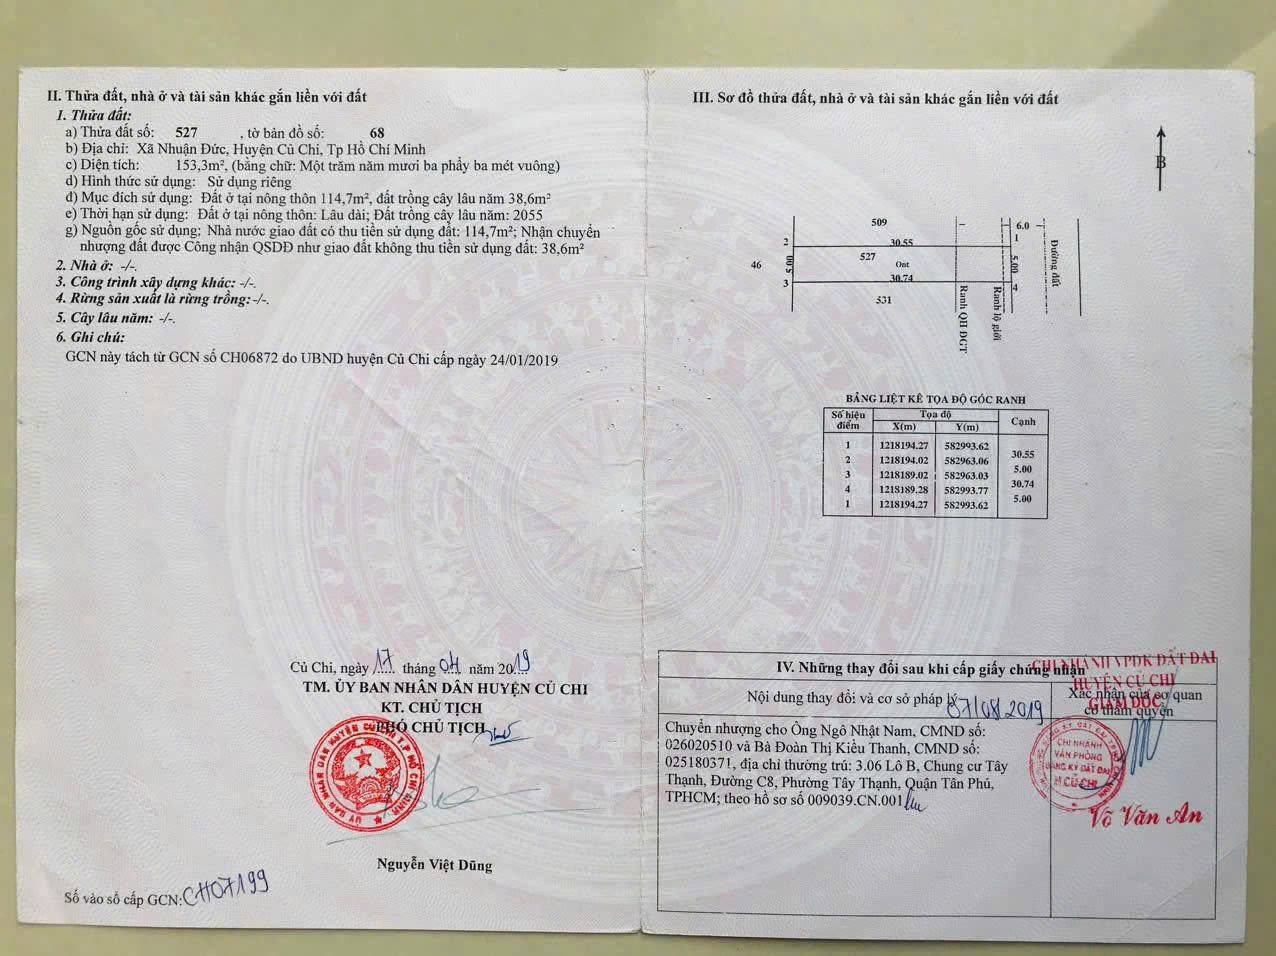 II. Thửa đất, nhà ở và tài sản khác gắn liền với đất
1. Thửa đất:
a) Thửa đất số: 527 , tờ bản đồ số: 68
b) Địa chỉ: Xã Nhuận Đức, Huyện Củ Chi, Tp Hồ Chí Minh
c) Diện tích: 153,3m², (bằng chữ: Một trăm năm mươi ba phẩy ba mét vuông)
d) Hình thức sử dụng: Sử dụng riêng
đ) Mục đích sử dụng: Đất ở tại nông thôn 114,7m², đất trồng cây lâu năm 38,6m²
e) Thời hạn sử dụng: Đất ở tại nông thôn: Lâu dài; Đất trồng cây lâu năm: 2055
g) Nguồn gốc sử dụng: Nhà nước giao đất có thu tiền sử dụng đất: 114,7m²; Nhận chuyển
nhượng đất được Công nhận QSDĐ như giao đất không thu tiền sử dụng đất: 38,6m²
2. Nhà ở: -/-.
3. Công trình xây dựng khác: -/-.
4. Rừng sản xuất là rừng trồng: -/-.
5. Cây lâu năm: -/-.
6. Ghi chú:
GCN này tách từ GCN số CH06872 do UBND huyện Củ Chi cấp ngày 24/01/2019
Củ Chi, ngày 17 tháng 04 năm 2019
TM. ỦY BAN NHÂN DÂN HUYỆN CỦ CHI
KT. CHỦ TỊCH
PHÓ CHỦ TỊCH
Nguyễn Việt Dũng
Số vào sổ cấp GCN: CH07199
III. Sơ đồ thửa đất, nhà ở và tài sản khác gắn liền với đất
B
509
6.0
2
30.55
1
46
5.00
527
Ont
5.00
Đường đất
3
30.74
4
531
Ranh QH ĐGT
Ranh lộ giới
BẢNG LIỆT KÊ TỌA ĐỘ GÓC RANH
Số hiệu điểm Tọa độ Cạnh
X(m) Y(m)
1 1218194.27 582993.62
30.55
2 1218194.02 582963.06
5.00
3 1218189.02 582963.03
30.74
4 1218189.28 582993.77
5.00
1 1218194.27 582993.62
IV. Những thay đổi sau khi cấp giấy chứng nhận
CHI NHÁNH VPĐK ĐẤT ĐAI
HUYỆN CỦ CHI
GIÁM ĐỐC
Nội dung thay đổi và cơ sở pháp lý
Xác nhận của cơ quan
có thẩm quyền
07/08.2019
Chuyển nhượng cho Ông Ngô Nhật Nam, CMND số:
026020510 và Bà Đoàn Thị Kiều Thanh, CMND số:
025180371, địa chỉ thường trú: 3.06 Lô B, Chung cư Tây
Thạnh, Đường C8, Phường Tây Thạnh, Quận Tân Phú,
TPHCM; theo hồ sơ số 009039.CN.001
CHI NHÁNH
VĂN PHÒNG
ĐĂNG KÝ ĐẤT ĐAI
H.CỦ CHI
Võ Văn An